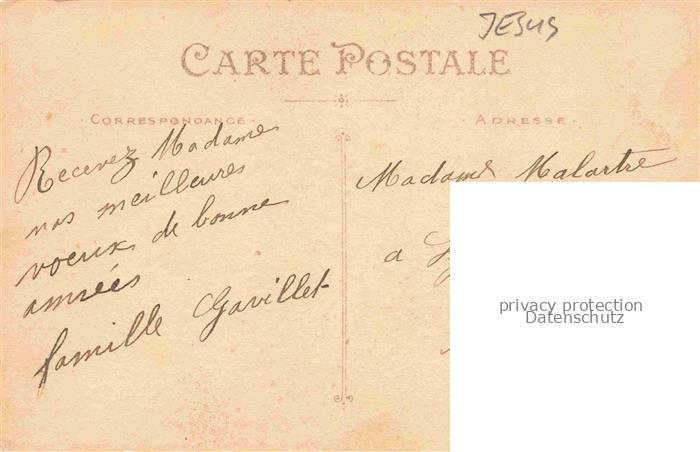 JESUS
CARTE POSTALE
CORRESPONDANCE
ADRESSE
Recevez Madame
nos meilleures
voeux de bonne
années
famille Gavillet
Madame Malartre
a
privacy protection
Datenschutz